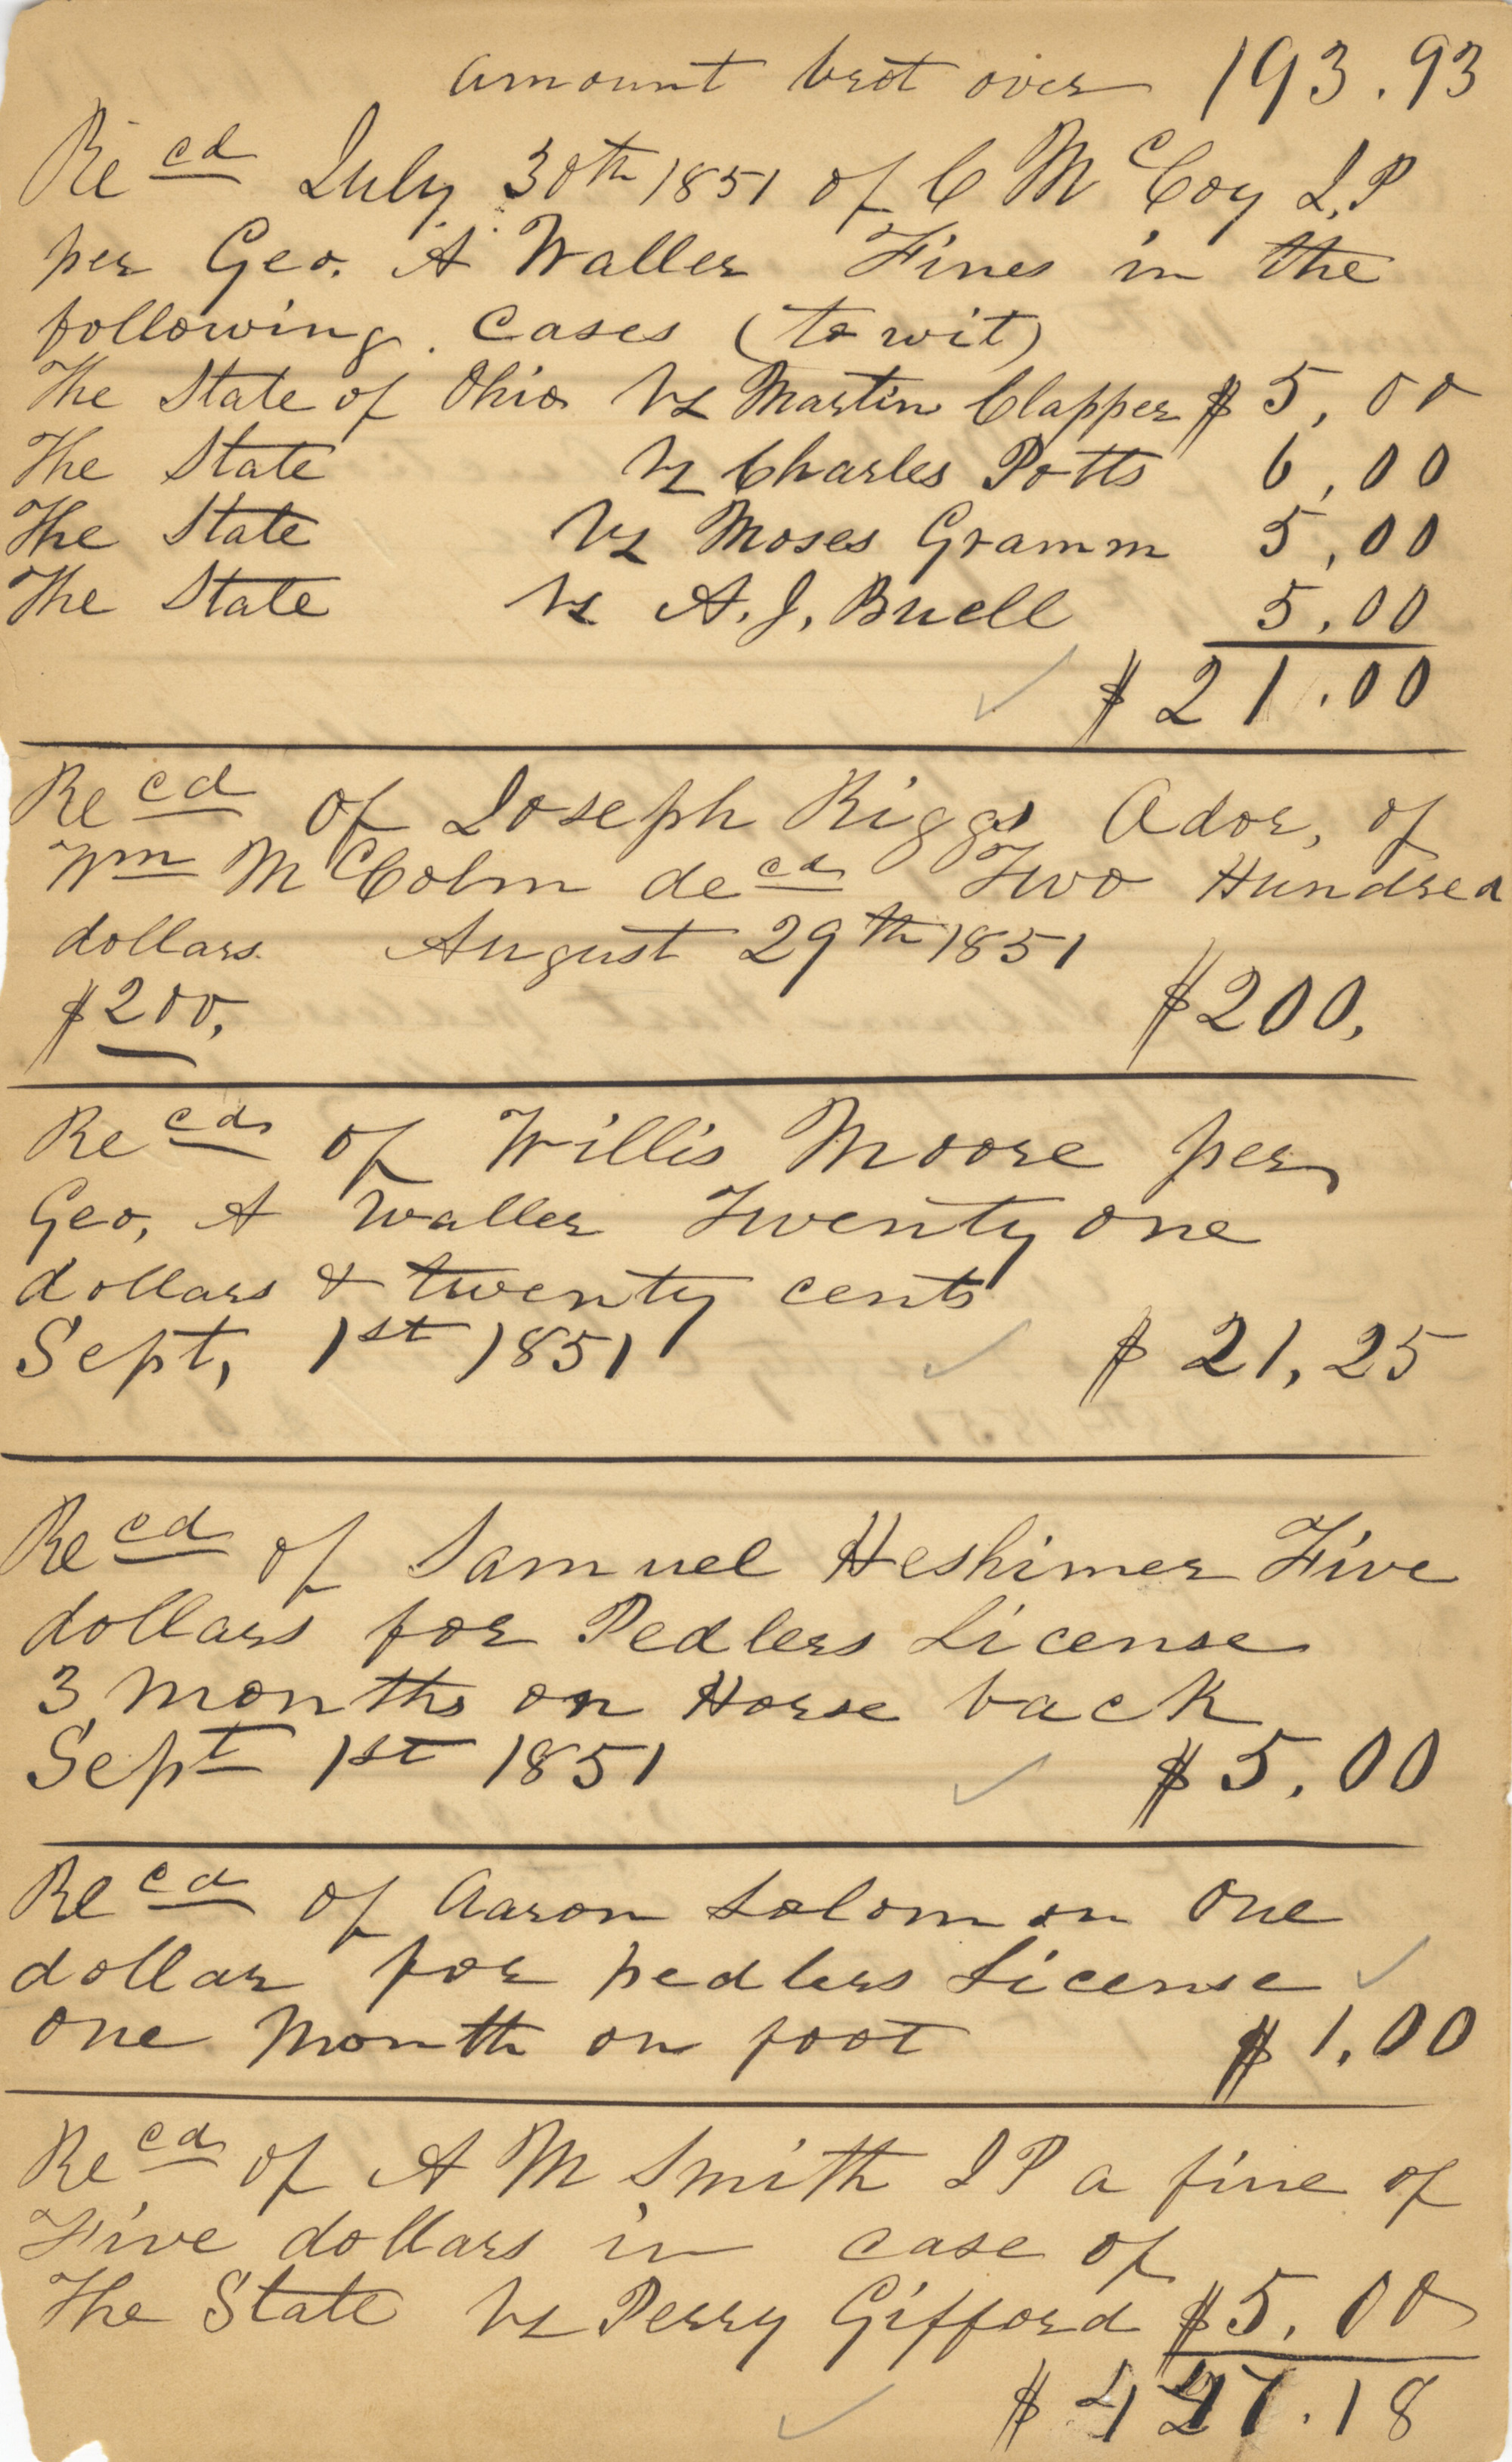 amount brot over 193.93
Recd July 30th 1851 of C McCoy J.P
per Geo. A Waller Fines in the
following cases (to wit)
The State of Ohio vs Martin Clapper $5,00
The State vs Charles Potts 6,00
The State vs Moses Gramm 5,00
The State vs A. J. Buell 5,00
$21.00
Recd of Joseph Riggs Ador, of
Wm McColm decd Two Hundred
dollars August 29th 1851
$200, $200,
Recd of Willis Moore per
Geo, A Waller Twenty one
dollars & twenty cents
Sept, 1st 1851 $21,25
Recd of Samuel Heshimer Five
dollars for Pedlers License
3 months on Horse back
Sept 1st 1851 $5.00
Recd of Aaron Solomon One
dollar for pedlers License
one Month on foot $1.00
Recd of A M Smith J P a fine of
Five dollars in case of
The State vs Perry Gifford $5.00
$447.18